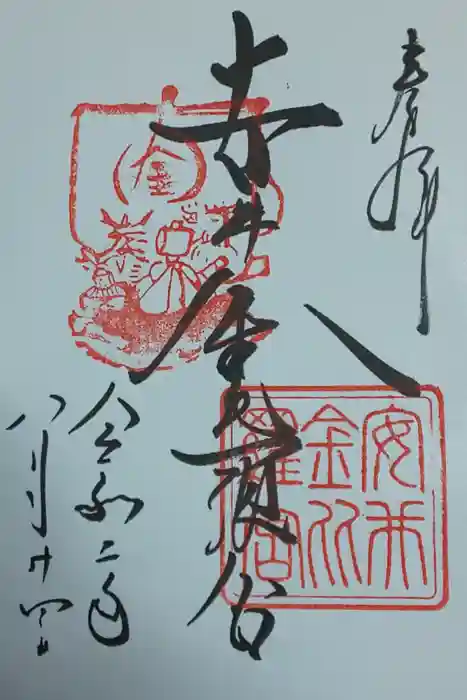 奉拝
安井金比羅宮
安井
金比
羅宮
金
令和二年
八月廿四日